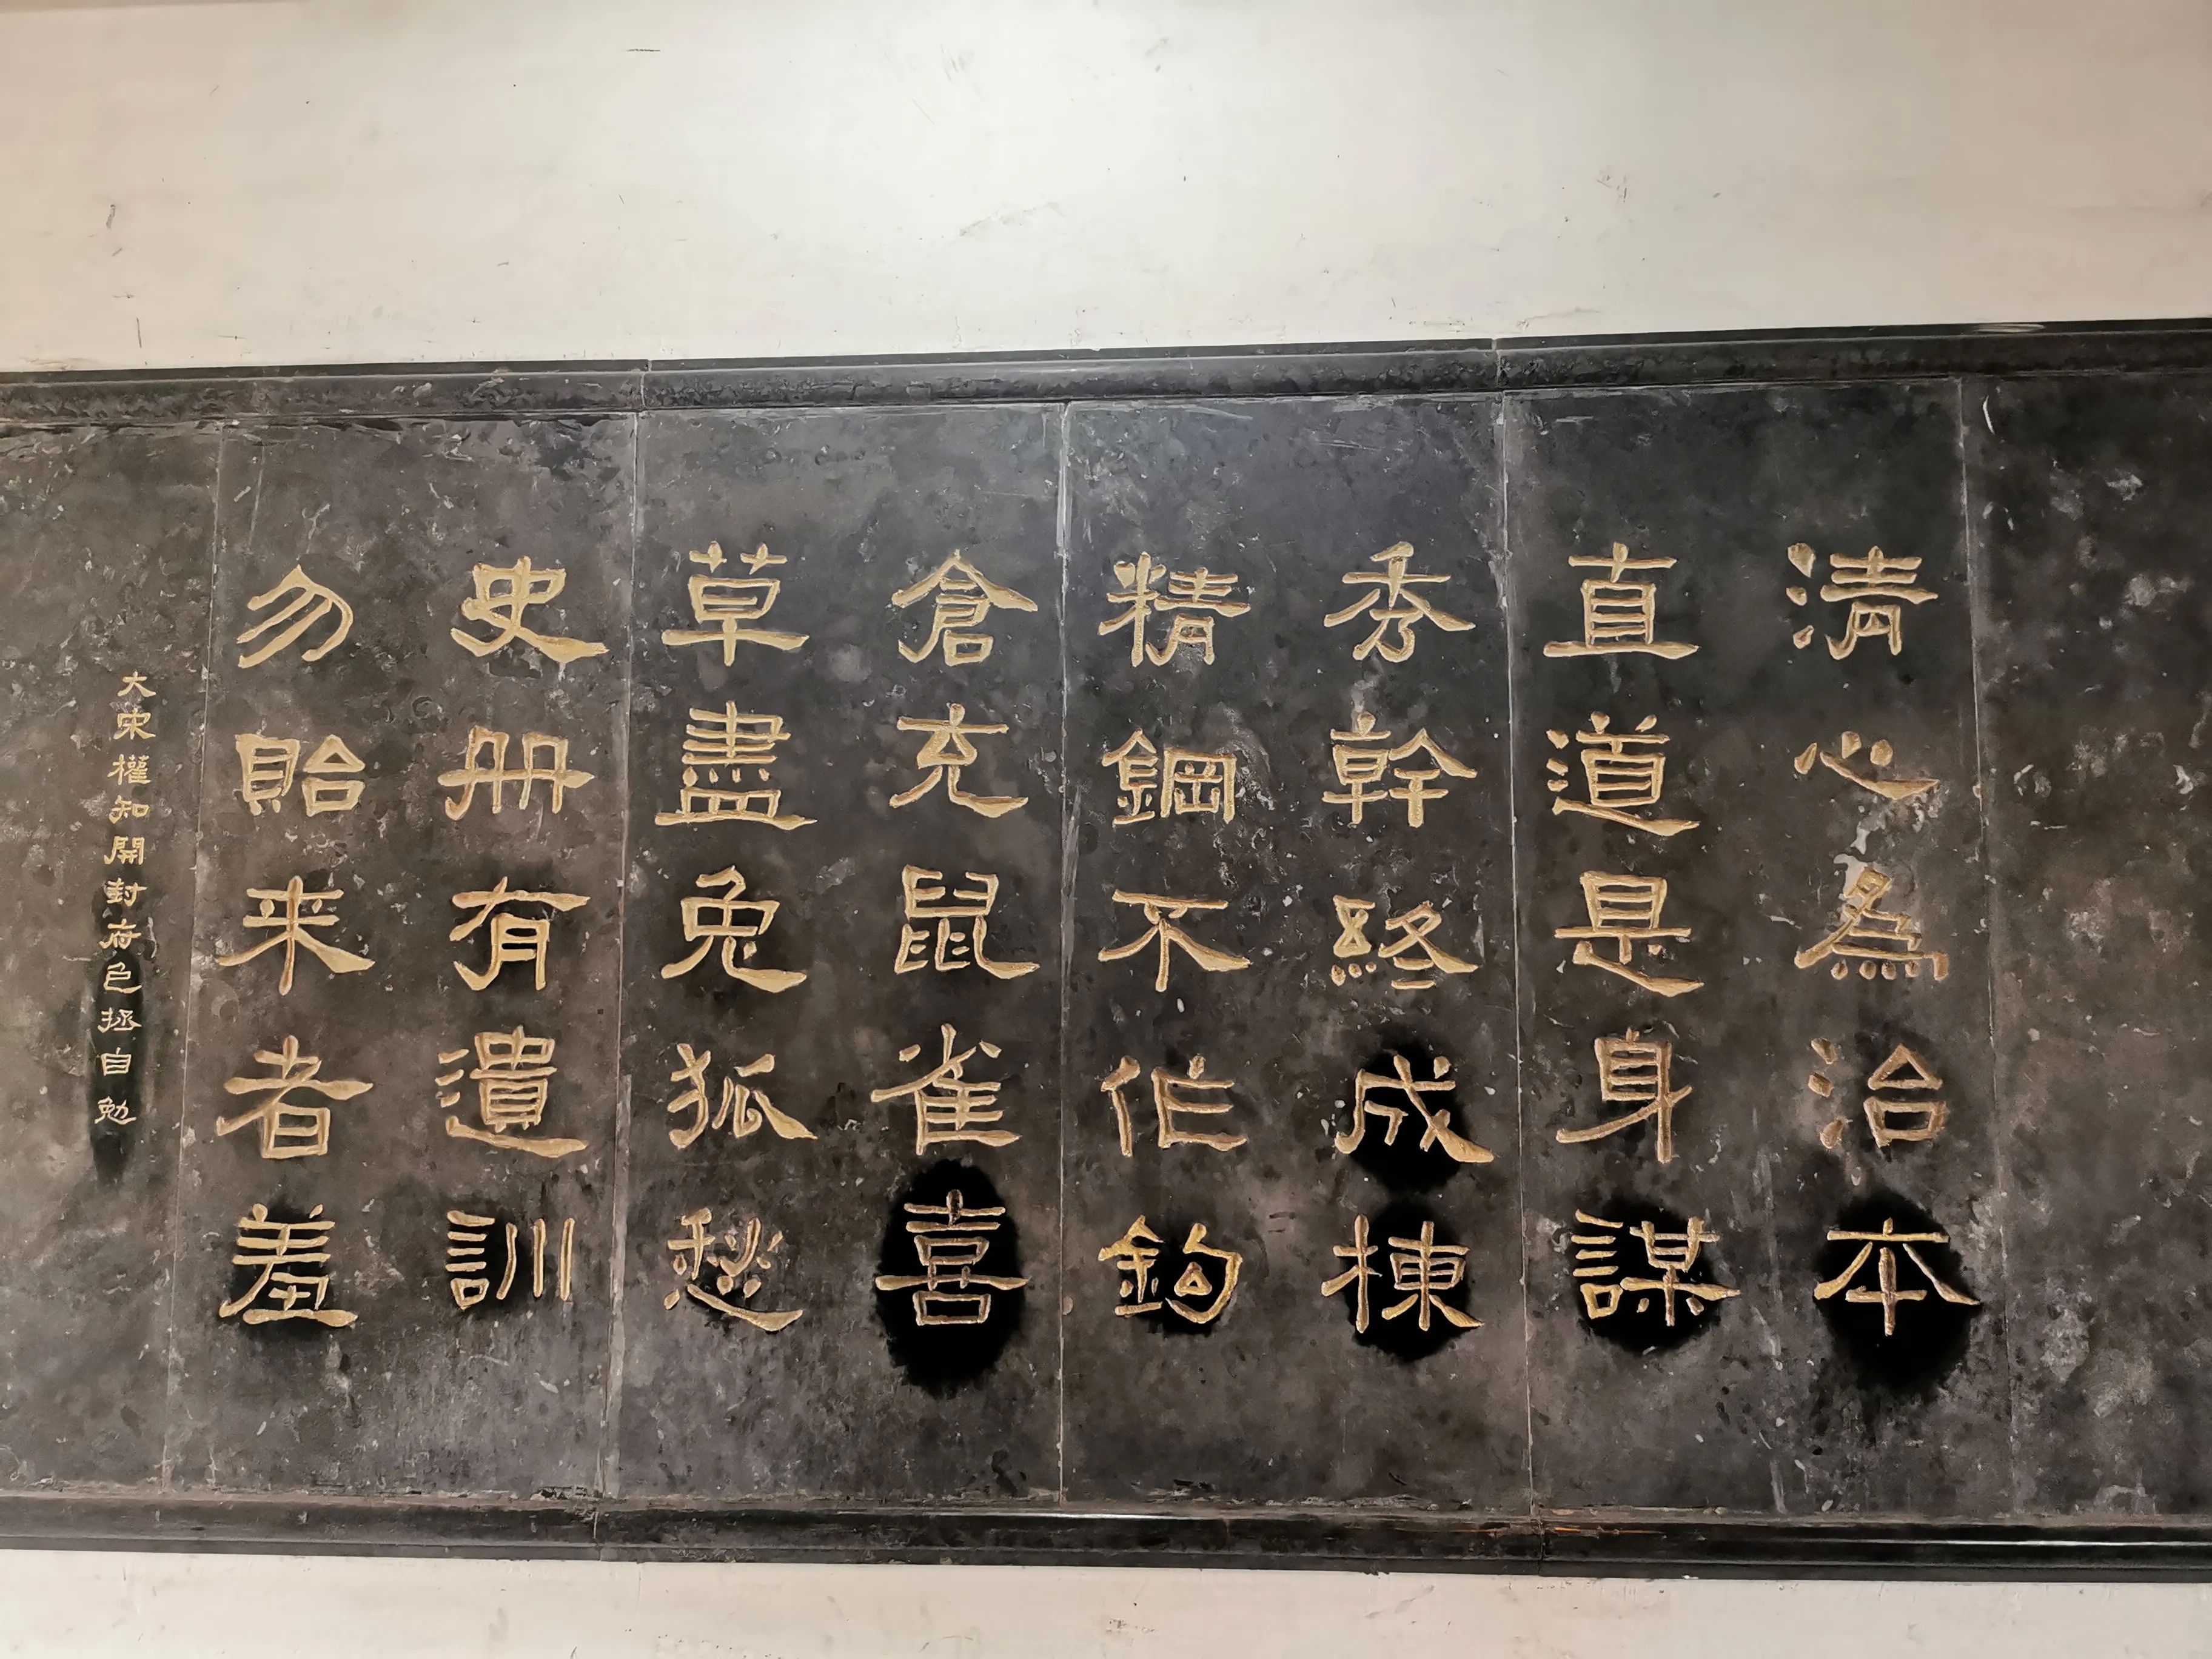 清心為治本
直道是身謀
秀幹終成棟
精鋼不作鉤
倉充鼠雀喜
草盡兔狐愁
史册有遺訓
勿貽来者羞
大宋權知開封府包拯自勉